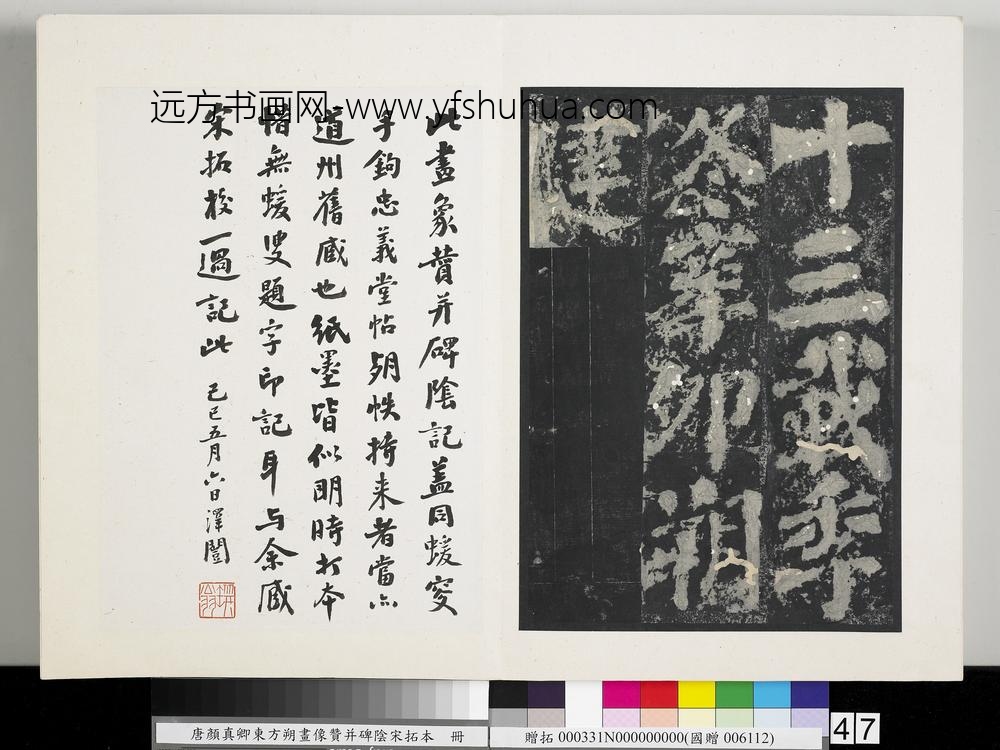 远方书画网 www.yfshuhua.com
十三載季
冬辛卯朔
建
此畫象贊并碑陰記蓋同蝯叟
手鉤忠義堂帖帙持来者當亦
道州舊藏也紙墨皆似明時打本
惜無蝯叟題字印記耳与余藏
宋拓校一過記此 己巳五月六日澤闓
瓶翁
唐顏真卿東方朔畫像贊并碑陰宋拓本 冊
贈拓 000331N000000000(國贈 006112)
47